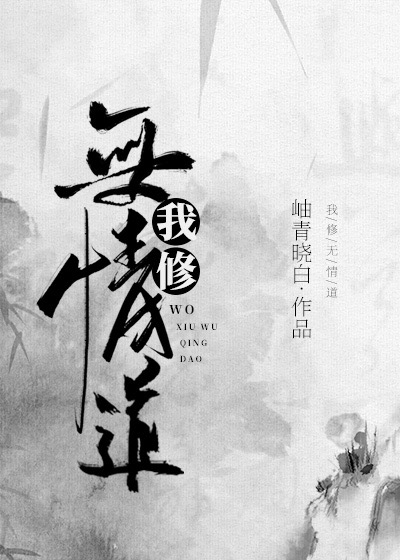 我修
無情道
WO
XIU WU
QING
DAO
岫青晓白·作品
我/修/无/情/道